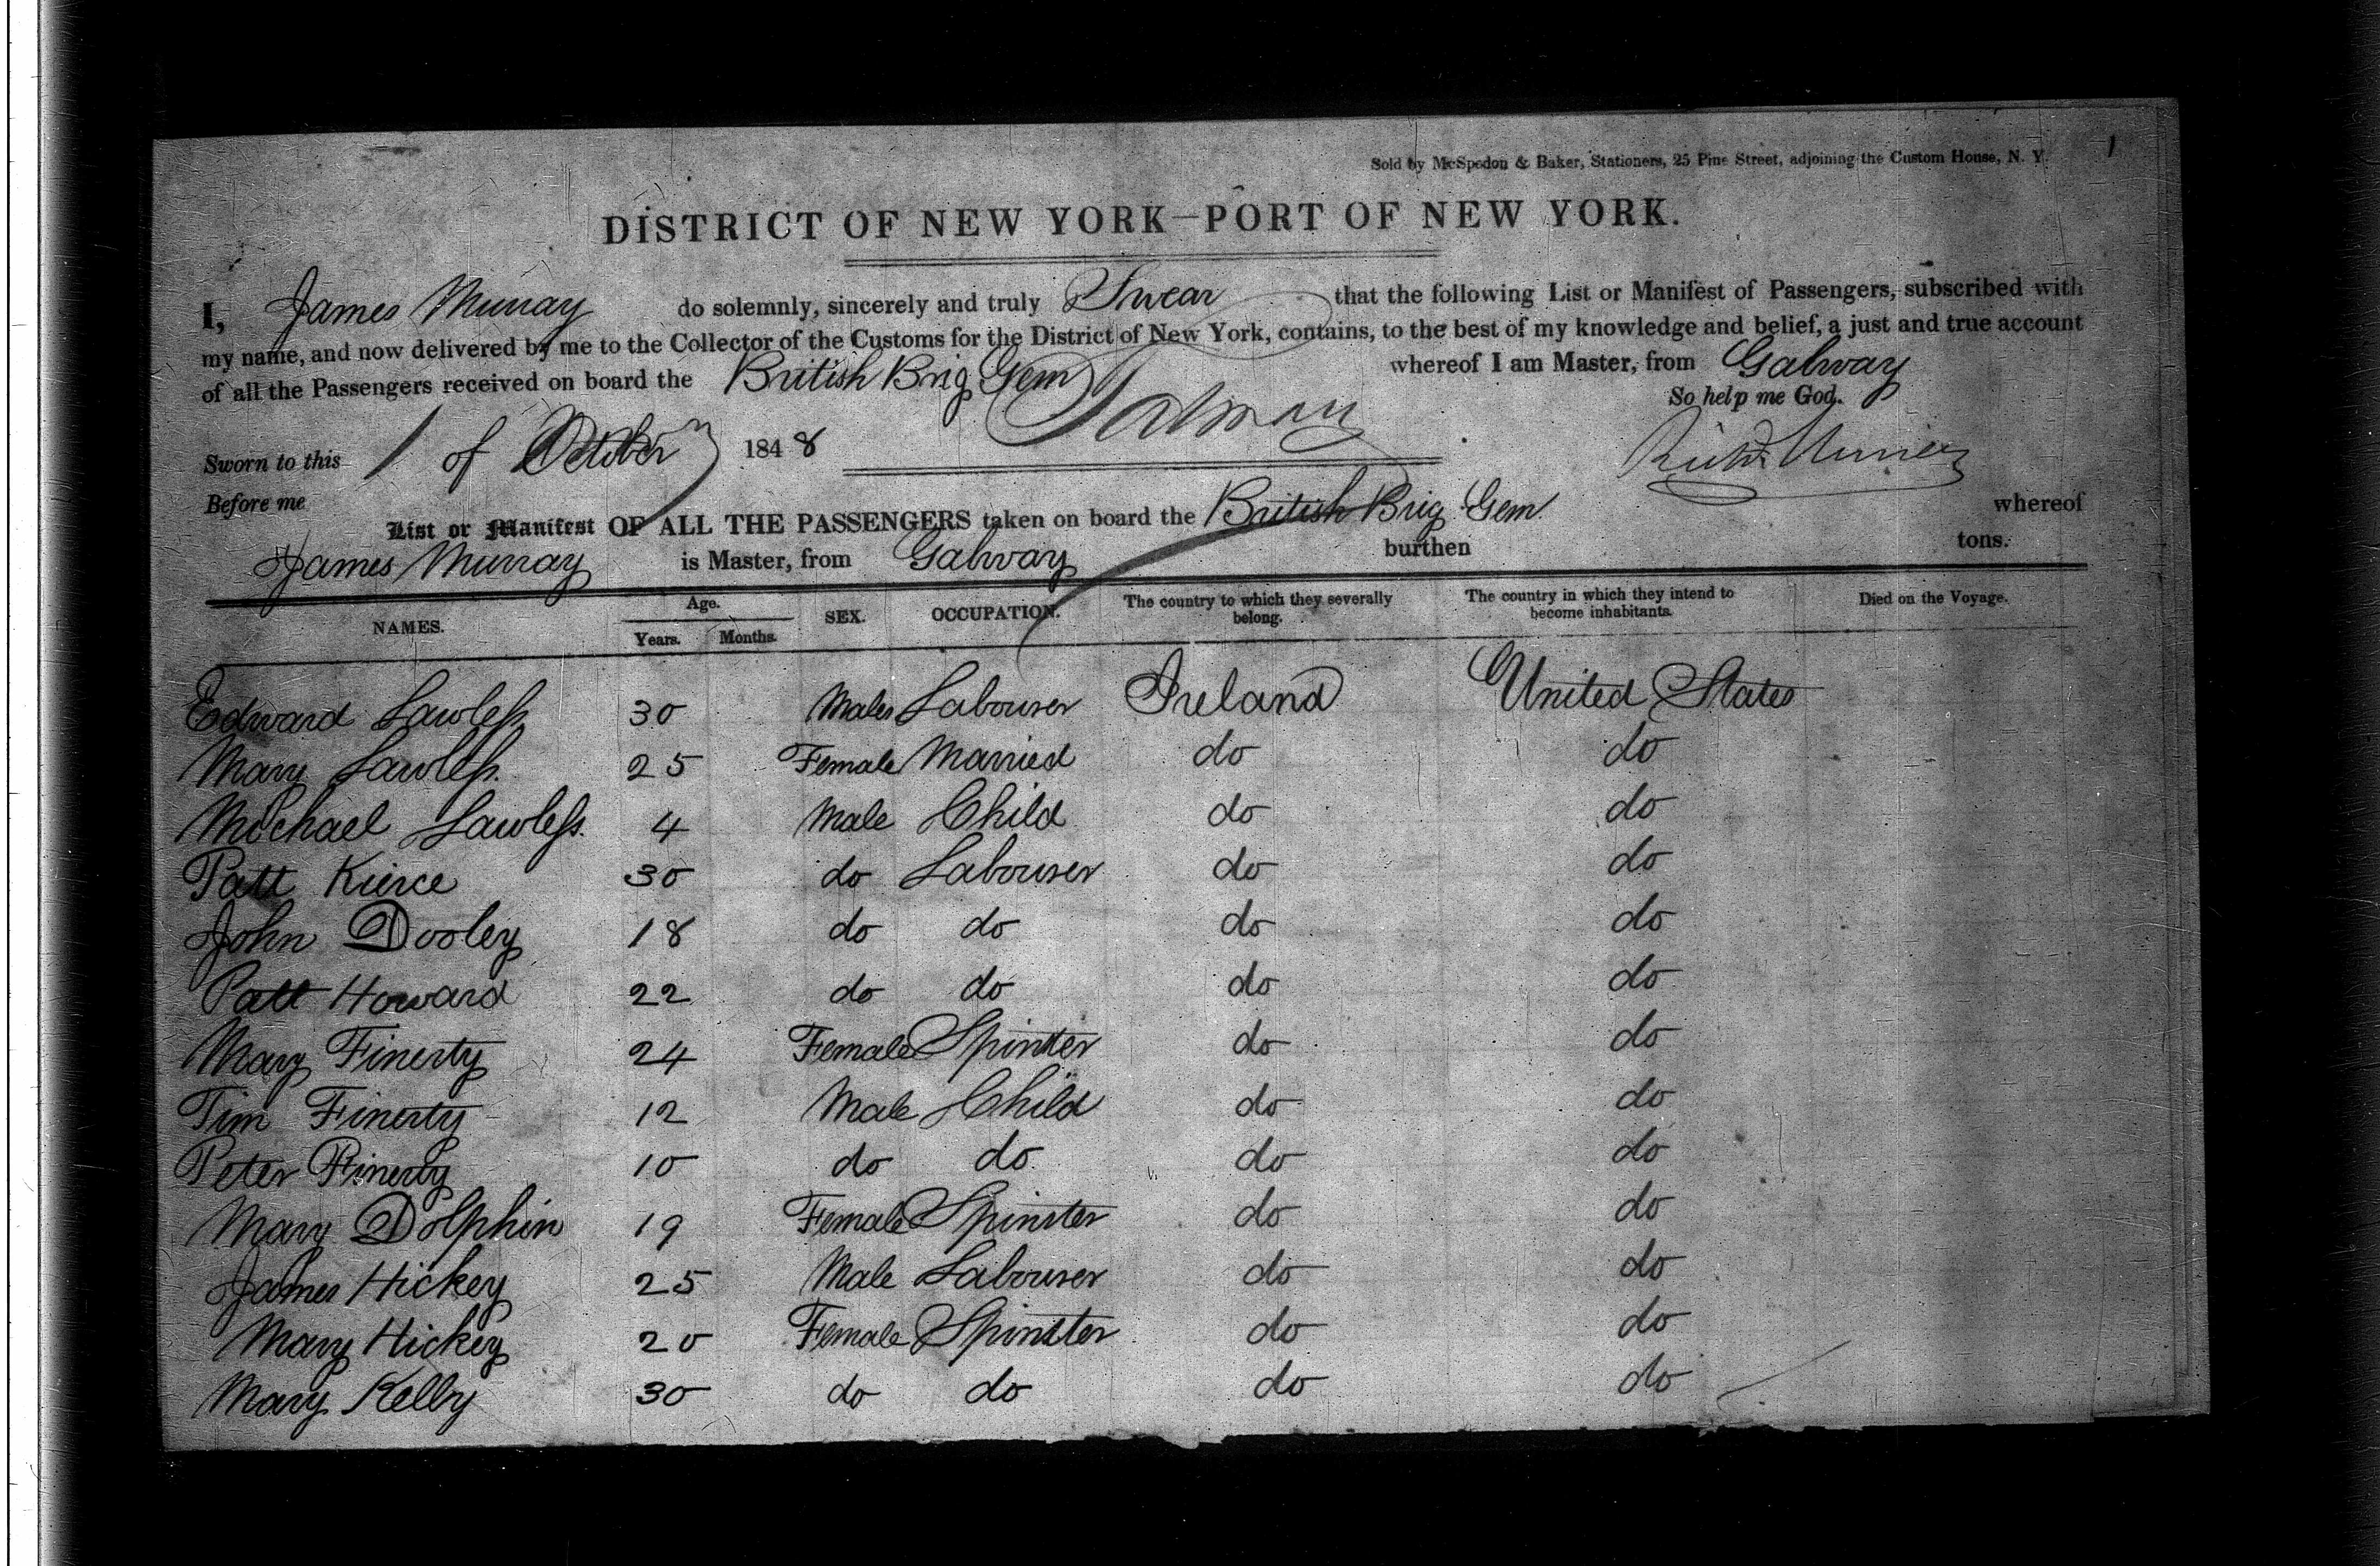 1
Sold by McSpedon & Baker, Stationers, 25 Pine Street, adjoining the Custom House, N. Y.
DISTRICT OF NEW YORK—PORT OF NEW YORK.
I, James Murray do solemnly, sincerely and truly Swear that the following List or Manifest of Passengers, subscribed with
my name, and now delivered by me to the Collector of the Customs for the District of New York, contains, to the best of my knowledge and belief, a just and true account
of all the Passengers received on board the British Brig Gem whereof I am Master, from Galway
So help me God.
Sworn to this 1 of October 1848
Before me
List or Manifest OF ALL THE PASSENGERS taken on board the British Brig Gem whereof
James Murray is Master, from Galway burthen tons.
NAMES. Age. Years. Months. SEX. OCCUPATION. The country to which they severally belong. The country in which they intend to become inhabitants. Died on the Voyage.
Edward Lawless 30 Males Labourer Ireland United States
Mary Lawless 25 Female Married do do
Michael Lawless 4 Male Child do do
Patt Kierce 30 do Labourer do do
John Dooley 18 do do do do
Patt Howard 22 do do do do
Mary Finerty 24 Female Spinster do do
Tim Finerty 12 Male Child do do
Peter Finerty 10 do do do do
Mary Dolphin 19 Female Spinster do do
James Hickey 25 Male Labourer do do
Mary Hickey 20 Female Spinster do do
Mary Kelly 30 do do do do